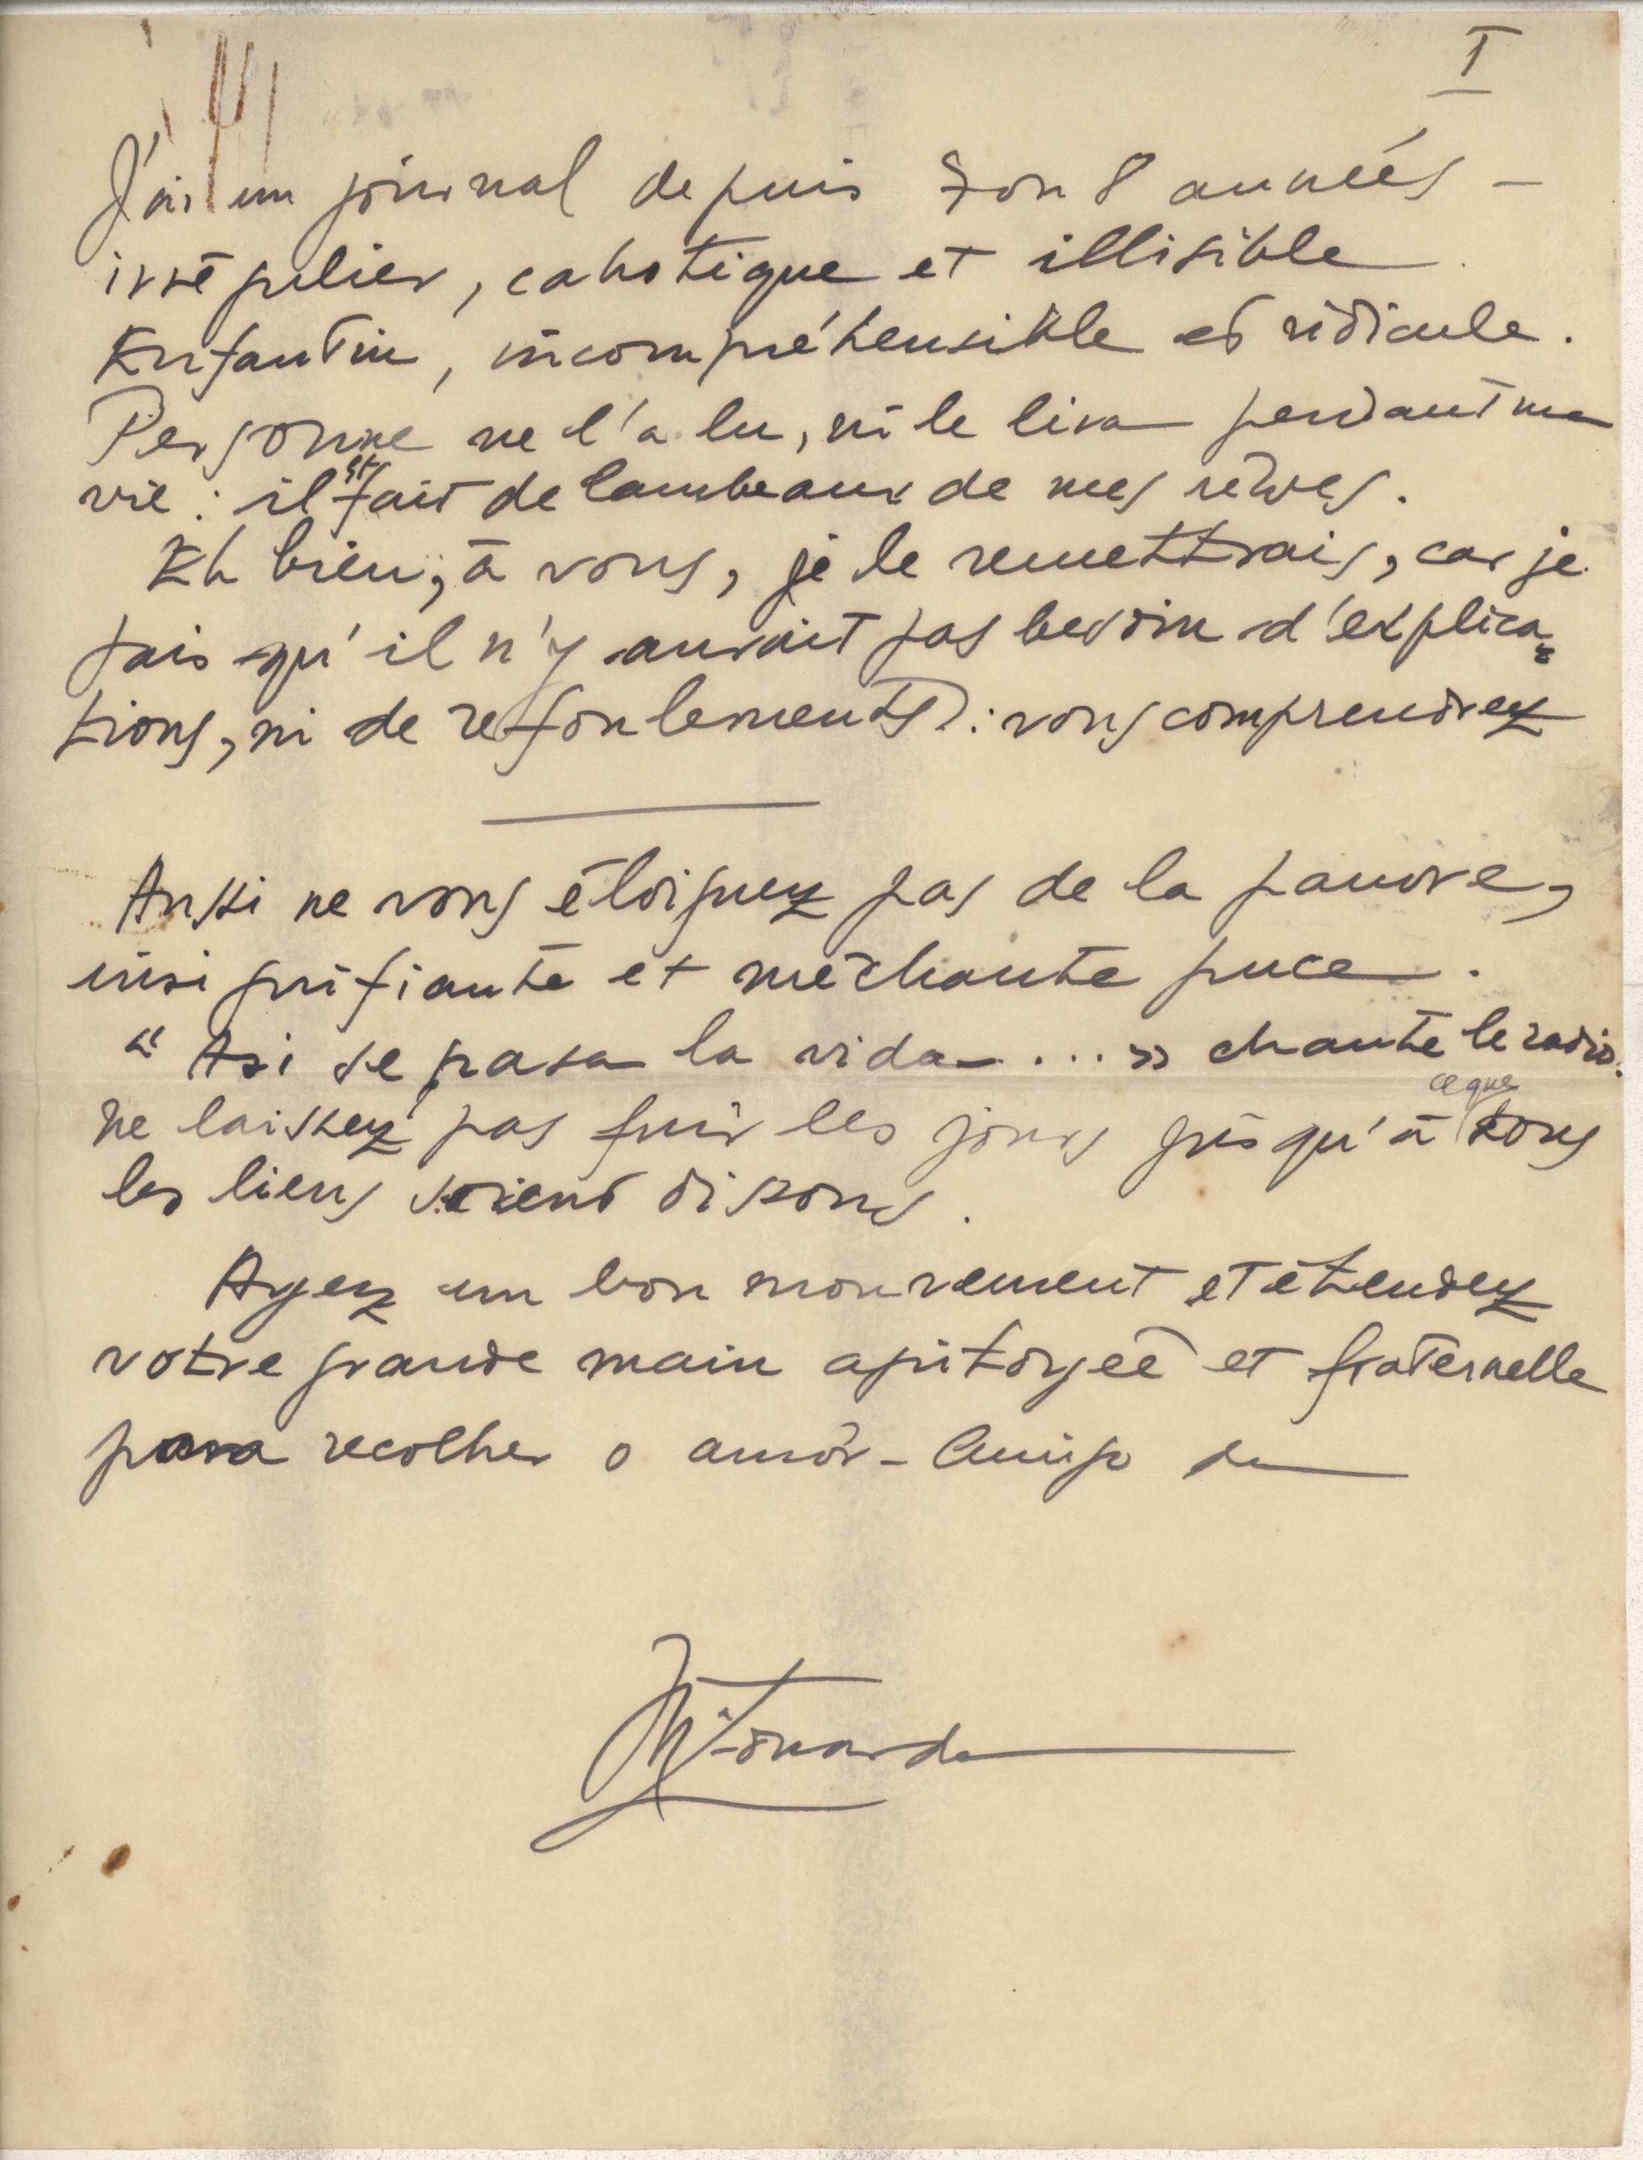 I
J'ai un journal depuis 7 ou 8 années -
irrégulier, cahotique et illisible
Enfantin, incompréhensible et ridicule.
Personne ne l'a lu, ni le lira pendant ma
vie : il est fait de lambeaux de mes rêves.
Eh bien, à vous, je le remettrais, car je
sais qu'il n'y aurait pas besoin d'explica-
tions, ni de refoulements : vous comprendrez
Aussi ne vous éloignez pas de la pauvre,
insignifiante et méchante puce.
"Asi se pasa la vida ... » chante le radio.
ne laissez pas fuir les jours jusqu'à ce que tous
les liens soient dissous.
Ayez un bon mouvement et étendez
votre grande main apitoyée et fraternelle
para recolher o amôr-amigo da